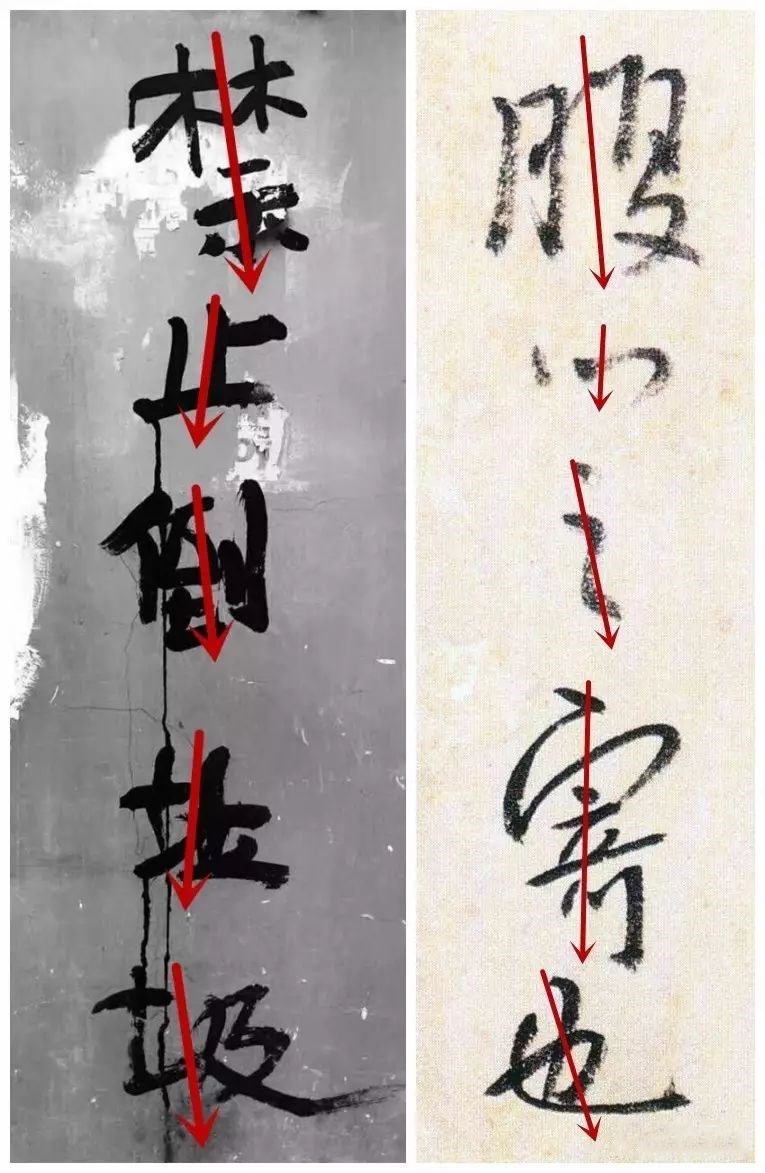 禁止倒垃圾
腹心之寄也